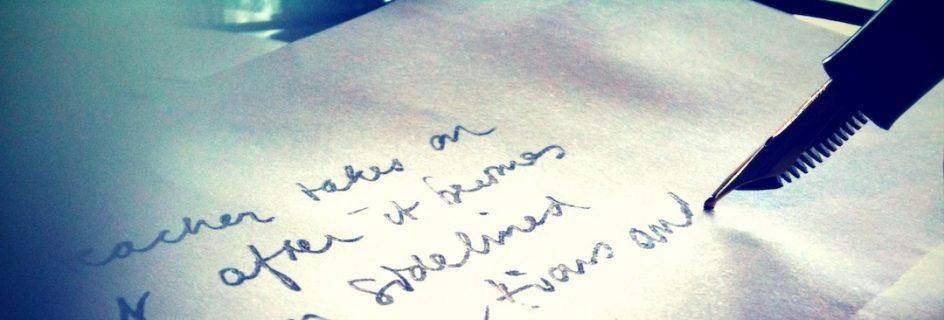 eacher takes on
after it becomes
sidelined
tions and